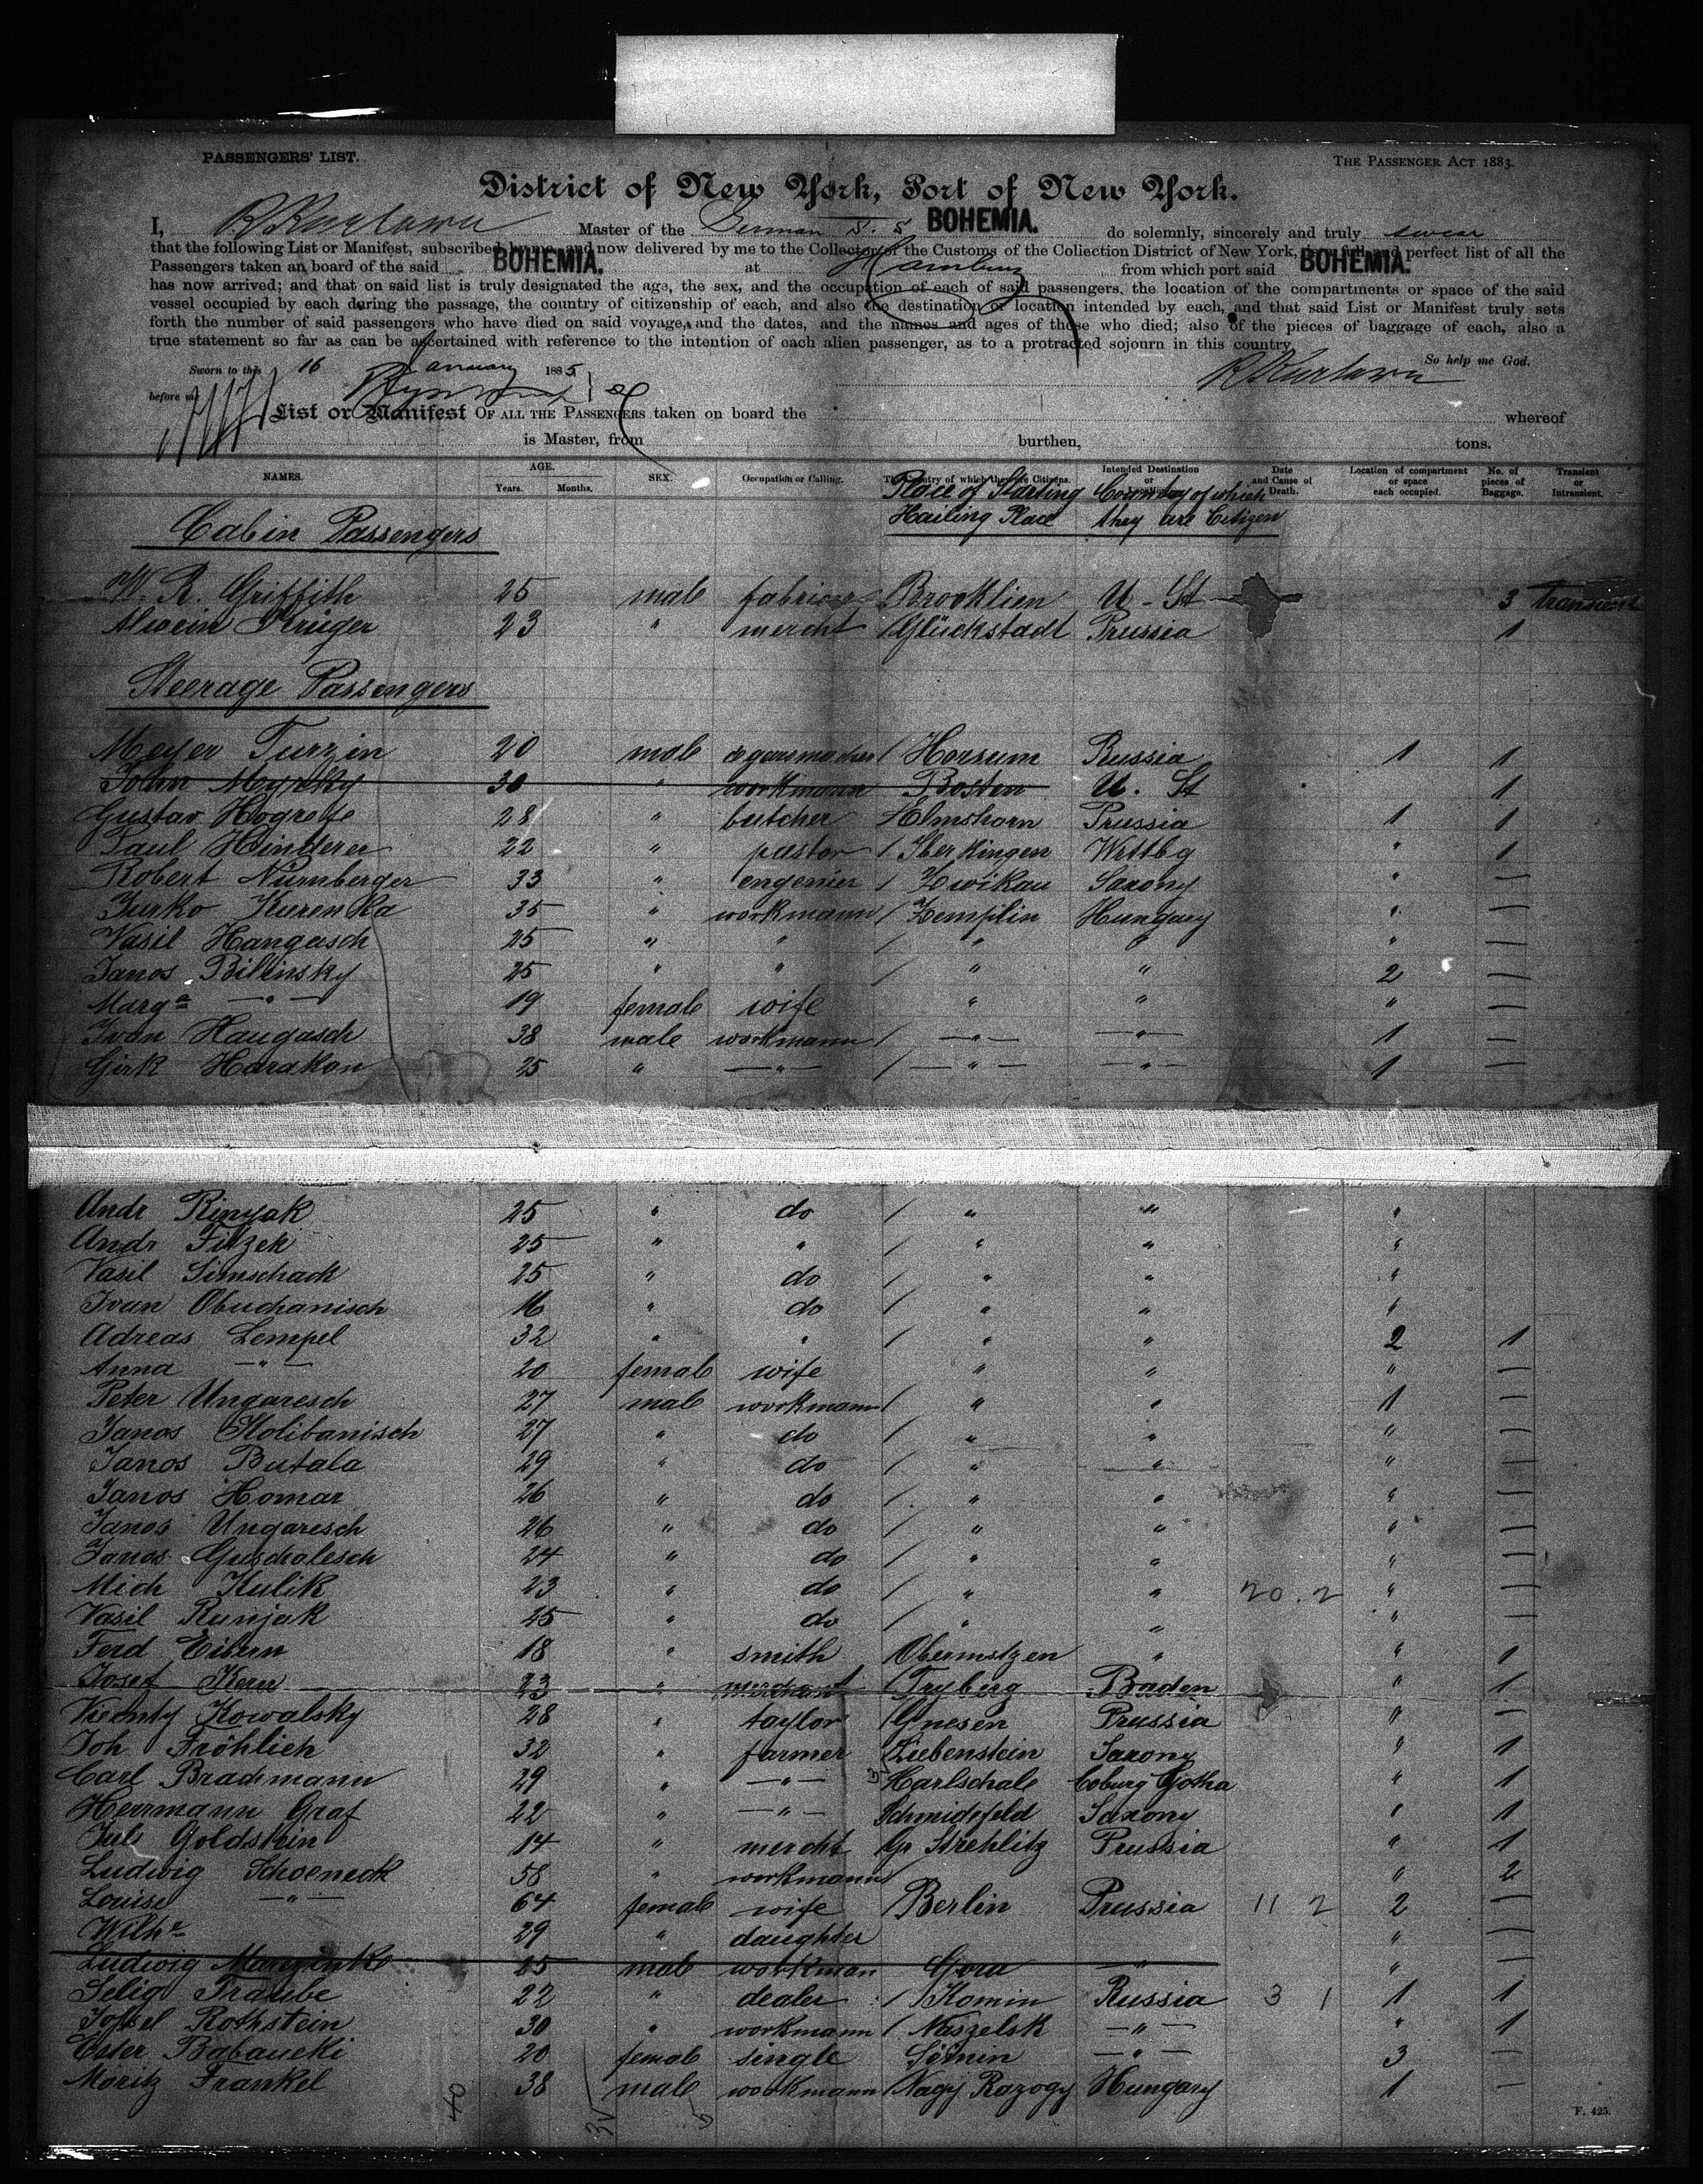 PASSENGERS' LIST. THE PASSENGER ACT 1883.
District of New York, Port of New York.
I, Master of the German S. S BOHEMIA. do solemnly, sincerely and truly swear
that the following List or Manifest, subscribed by me, and now delivered by me to the Collector of the Customs of the Collection District of New York, is a full and perfect list of all the
Passengers taken an board of the said BOHEMIA. at Hamburg from which port said BOHEMIA.
has now arrived; and that on said list is truly designated the age, the sex, and the occupation of each of said passengers, the location of the compartments or space of the said
vessel occupied by each during the passage, the country of citizenship of each, and also the destination or location intended by each, and that said List or Manifest truly sets
forth the number of said passengers who have died on said voyage, and the dates, and the names and ages of those who died; also of the pieces of baggage of each, also a
true statement so far as can be ascertained with reference to the intention of each alien passenger, as to a protracted sojourn in this country.
So help me God.
Sworn to this 16 January 1885
before me
List or Manifest OF ALL THE PASSENGERS taken on board the whereof
is Master, from burthen, tons.
NAMES. AGE. Years. Months. SEX. Occupation or Calling. The Country of which they are Citizens. Intended Destination or Location. Date and Cause of Death. Location of compartment or space each occupied. No. of pieces of Baggage. Transient or Intransient.
Place of Starting Country of which
Hailing Place they are Citizen
Cabin Passengers
W. R. Griffith 25 male Brooklien U-St 3 transient
Alwein Krüger 23 " mercht Glückstadt Prussia 1
Steerage Passengers
Meyer Turzin 20 male cegarsmacher Horsum Russia 1 1
John 30 " workmann Boston U. St 1
Gustav Hogrefe 28 " butcher Elmshorn Prussia 1 1
Paul Hinderer 22 " pastor Wrttbg " 1
Robert Nürnberger 33 " engenier Zwikau Saxony " —
Jurko Kurenka 35 " workmann Zemplin Hungary " —
Vasil Hangasch 25 " " " " " —
Janos Billinsky 25 " " " " 2 —
Marga — " — 19 female wife " " " —
Ivan Haugasch 38 male workmann — " — — " — 1 —
Girk Harakon 25 " — " — — " — — " — 1 —
Andr Rinyak 25 " do " " "
Andr Fitzek 25 " " " " "
Vasil Simschack 25 " do " " "
Ivan Obuchanisch 16 " do " " "
Adreas Lempel 32 " " " " 2 1
Anna — " — 20 female wife " " " —
Peter Ungaresch 27 male workmann " " 1 —
Janos Kolibanisch 27 " do " " " —
Janos Butala 29 " do " " " —
Janos Homar 26 " do " " " —
Janos Ungaresch 26 " do " " " —
Janos Guschalesch 24 " do " " " —
Mich Kulik 23 " do " " 20.2 " —
Vasil Runjak 25 " do " " " —
Ferd Eibern 18 " smith " " 1
Josef Kern 23 " merchant Tryberg Baden " 1
Kowalsky 28 " taylor Gnesen Prussia " —
Joh Fröhlich 32 " farmer Liebenstein Saxony " 1
Carl Brachmann 29 " — " — Karlschale Coburg Gotha " 1
Herrmann Graf 22 " — " — Schmidefeld Saxony " 1
Juls Goldstein 14 " mercht Gr Strehlitz Prussia " 1
Ludwig Schoeneck 58 " workmann " 2
Louise — " — 64 female wife Berlin Prussia 11 2 2 —
Wilhe 29 " daughter " —
Ludwig 25 male workman Gora — " — " —
Selig Traube 22 " dealer Komin Russia 3 1 1 1
Jossel Rothstein 30 " workmann Naszelsk — " — " 1
Ester Babaucki 20 female single — " — 3 —
Moritz Frankel 38 male workmann Nagy Razogy Hungary 1 —
40
F. 425.